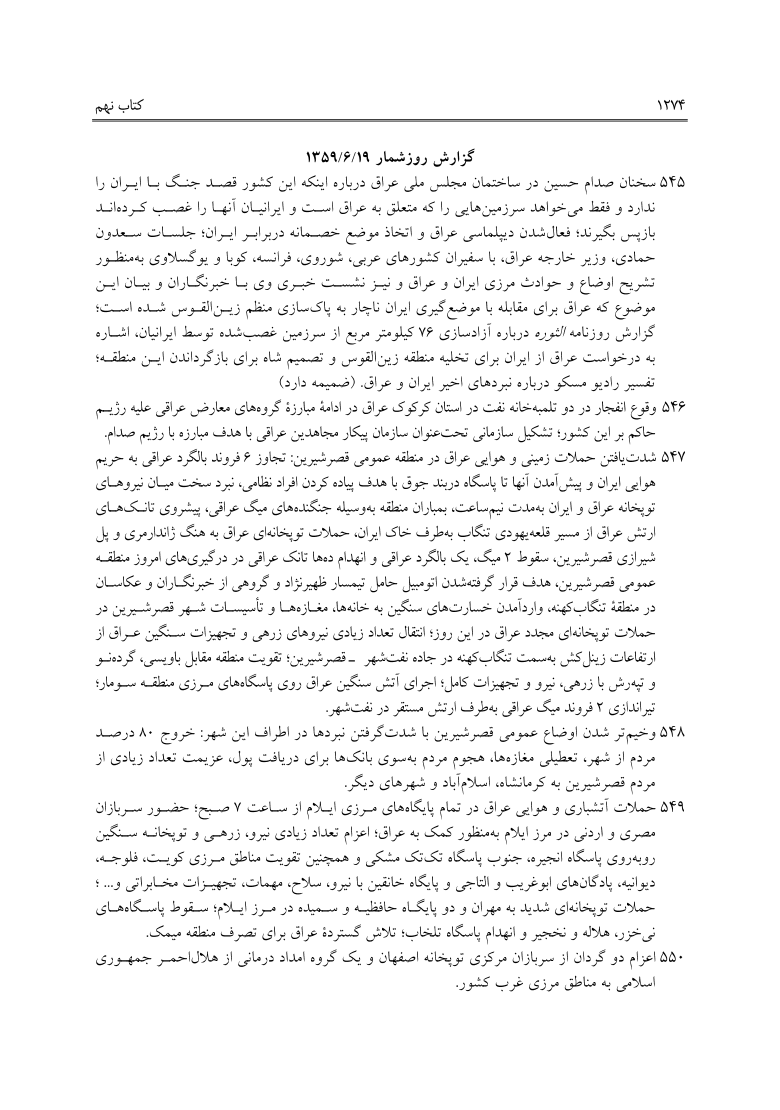 ۱۲۷۴ کتاب نهم
گزارش روزشمار ۱۳۵۹/۶/۱۹
۵۴۵ سخنان صدام حسین در ساختمان مجلس ملی عراق درباره اینکه این کشور قصد جنگ با ایران را
ندارد و فقط می‌خواهد سرزمین‌هایی را که متعلق به عراق است و ایرانیان آنها را غصب کرده‌اند
بازپس بگیرند؛ فعال‌شدن دیپلماسی عراق و اتخاذ موضع خصمانه دربرابر ایران؛ جلسات سعدون
حمادی، وزیر خارجه عراق، با سفیران کشورهای عربی، شوروی، فرانسه، کوبا و یوگسلاوی به‌منظور
تشریح اوضاع و حوادث مرزی ایران و عراق و نیز نشست خبری وی با خبرنگاران و بیان این
موضوع که عراق برای مقابله با موضع‌گیری ایران ناچار به پاک‌سازی منظم زین‌القوس شده است؛
گزارش روزنامه الثوره درباره آزادسازی ۷۶ کیلومتر مربع از سرزمین غصب‌شده توسط ایرانیان، اشاره
به درخواست عراق از ایران برای تخلیه منطقه زین‌القوس و تصمیم شاه برای بازگرداندن این منطقه؛
تفسیر رادیو مسکو درباره نبردهای اخیر ایران و عراق. (ضمیمه دارد)
۵۴۶ وقوع انفجار در دو تلمبه‌خانه نفت در استان کرکوک عراق در ادامۀ مبارزۀ گروه‌های معارض عراقی علیه رژیم
حاکم بر این کشور؛ تشکیل سازمانی تحت‌عنوان سازمان پیکار مجاهدین عراقی با هدف مبارزه با رژیم صدام.
۵۴۷ شدت‌یافتن حملات زمینی و هوایی عراق در منطقه عمومی قصرشیرین: تجاوز ۶ فروند بالگرد عراقی به حریم
هوایی ایران و پیش‌آمدن آنها تا پاسگاه دربند جوق با هدف پیاده کردن افراد نظامی، نبرد سخت میان نیروهای
توپخانه عراق و ایران به‌مدت نیم‌ساعت، بمباران منطقه به‌وسیله جنگنده‌های میگ عراقی، پیشروی تانک‌های
ارتش عراق از مسیر قلعه‌یهودی تنگاب به‌طرف خاک ایران، حملات توپخانه‌ای عراق به هنگ ژاندارمری و پل
شیرازی قصرشیرین، سقوط ۲ میگ، یک بالگرد عراقی و انهدام ده‌ها تانک عراقی در درگیری‌های امروز منطقه
عمومی قصرشیرین، هدف قرار گرفته‌شدن اتومبیل حامل تیمسار ظهیرنژاد و گروهی از خبرنگاران و عکاسان
در منطقۀ تنگاب‌کهنه، واردآمدن خسارت‌های سنگین به خانه‌ها، مغازه‌ها و تأسیسات شهر قصرشیرین در
حملات توپخانه‌ای مجدد عراق در این روز؛ انتقال تعداد زیادی نیروهای زرهی و تجهیزات سنگین عراق از
ارتفاعات زینل‌کش به‌سمت تنگاب‌کهنه در جاده نفت‌شهر ـ قصرشیرین؛ تقویت منطقه مقابل باویسی، گرده‌نو
و تپه‌رش با زرهی، نیرو و تجهیزات کامل؛ اجرای آتش سنگین عراق روی پاسگاه‌های مرزی منطقه سومار؛
تیراندازی ۲ فروند میگ عراقی به‌طرف ارتش مستقر در نفت‌شهر.
۵۴۸ وخیم‌تر شدن اوضاع عمومی قصرشیرین با شدت‌گرفتن نبردها در اطراف این شهر: خروج ۸۰ درصد
مردم از شهر، تعطیلی مغازه‌ها، هجوم مردم به‌سوی بانک‌ها برای دریافت پول، عزیمت تعداد زیادی از
مردم قصرشیرین به کرمانشاه، اسلام‌آباد و شهرهای دیگر.
۵۴۹ حملات آتشباری و هوایی عراق در تمام پایگاه‌های مرزی ایلام از ساعت ۷ صبح؛ حضور سربازان
مصری و اردنی در مرز ایلام به‌منظور کمک به عراق؛ اعزام تعداد زیادی نیرو، زرهی و توپخانه سنگین
روبه‌روی پاسگاه انجیره، جنوب پاسگاه تک‌تک مشکی و همچنین تقویت مناطق مرزی کویت، فلوجه،
دیوانیه، پادگان‌های ابوغریب و التاجی و پایگاه خانقین با نیرو، سلاح، مهمات، تجهیزات مخابراتی و... ؛
حملات توپخانه‌ای شدید به مهران و دو پایگاه حافظیه و سمیده در مرز ایلام؛ سقوط پاسگاه‌های
نی‌خزر، هلاله و نخجیر و انهدام پاسگاه تلخاب؛ تلاش گستردۀ عراق برای تصرف منطقه میمک.
۵۵۰ اعزام دو گردان از سربازان مرکزی توپخانه اصفهان و یک گروه امداد درمانی از هلال‌احمر جمهوری
اسلامی به مناطق مرزی غرب کشور.